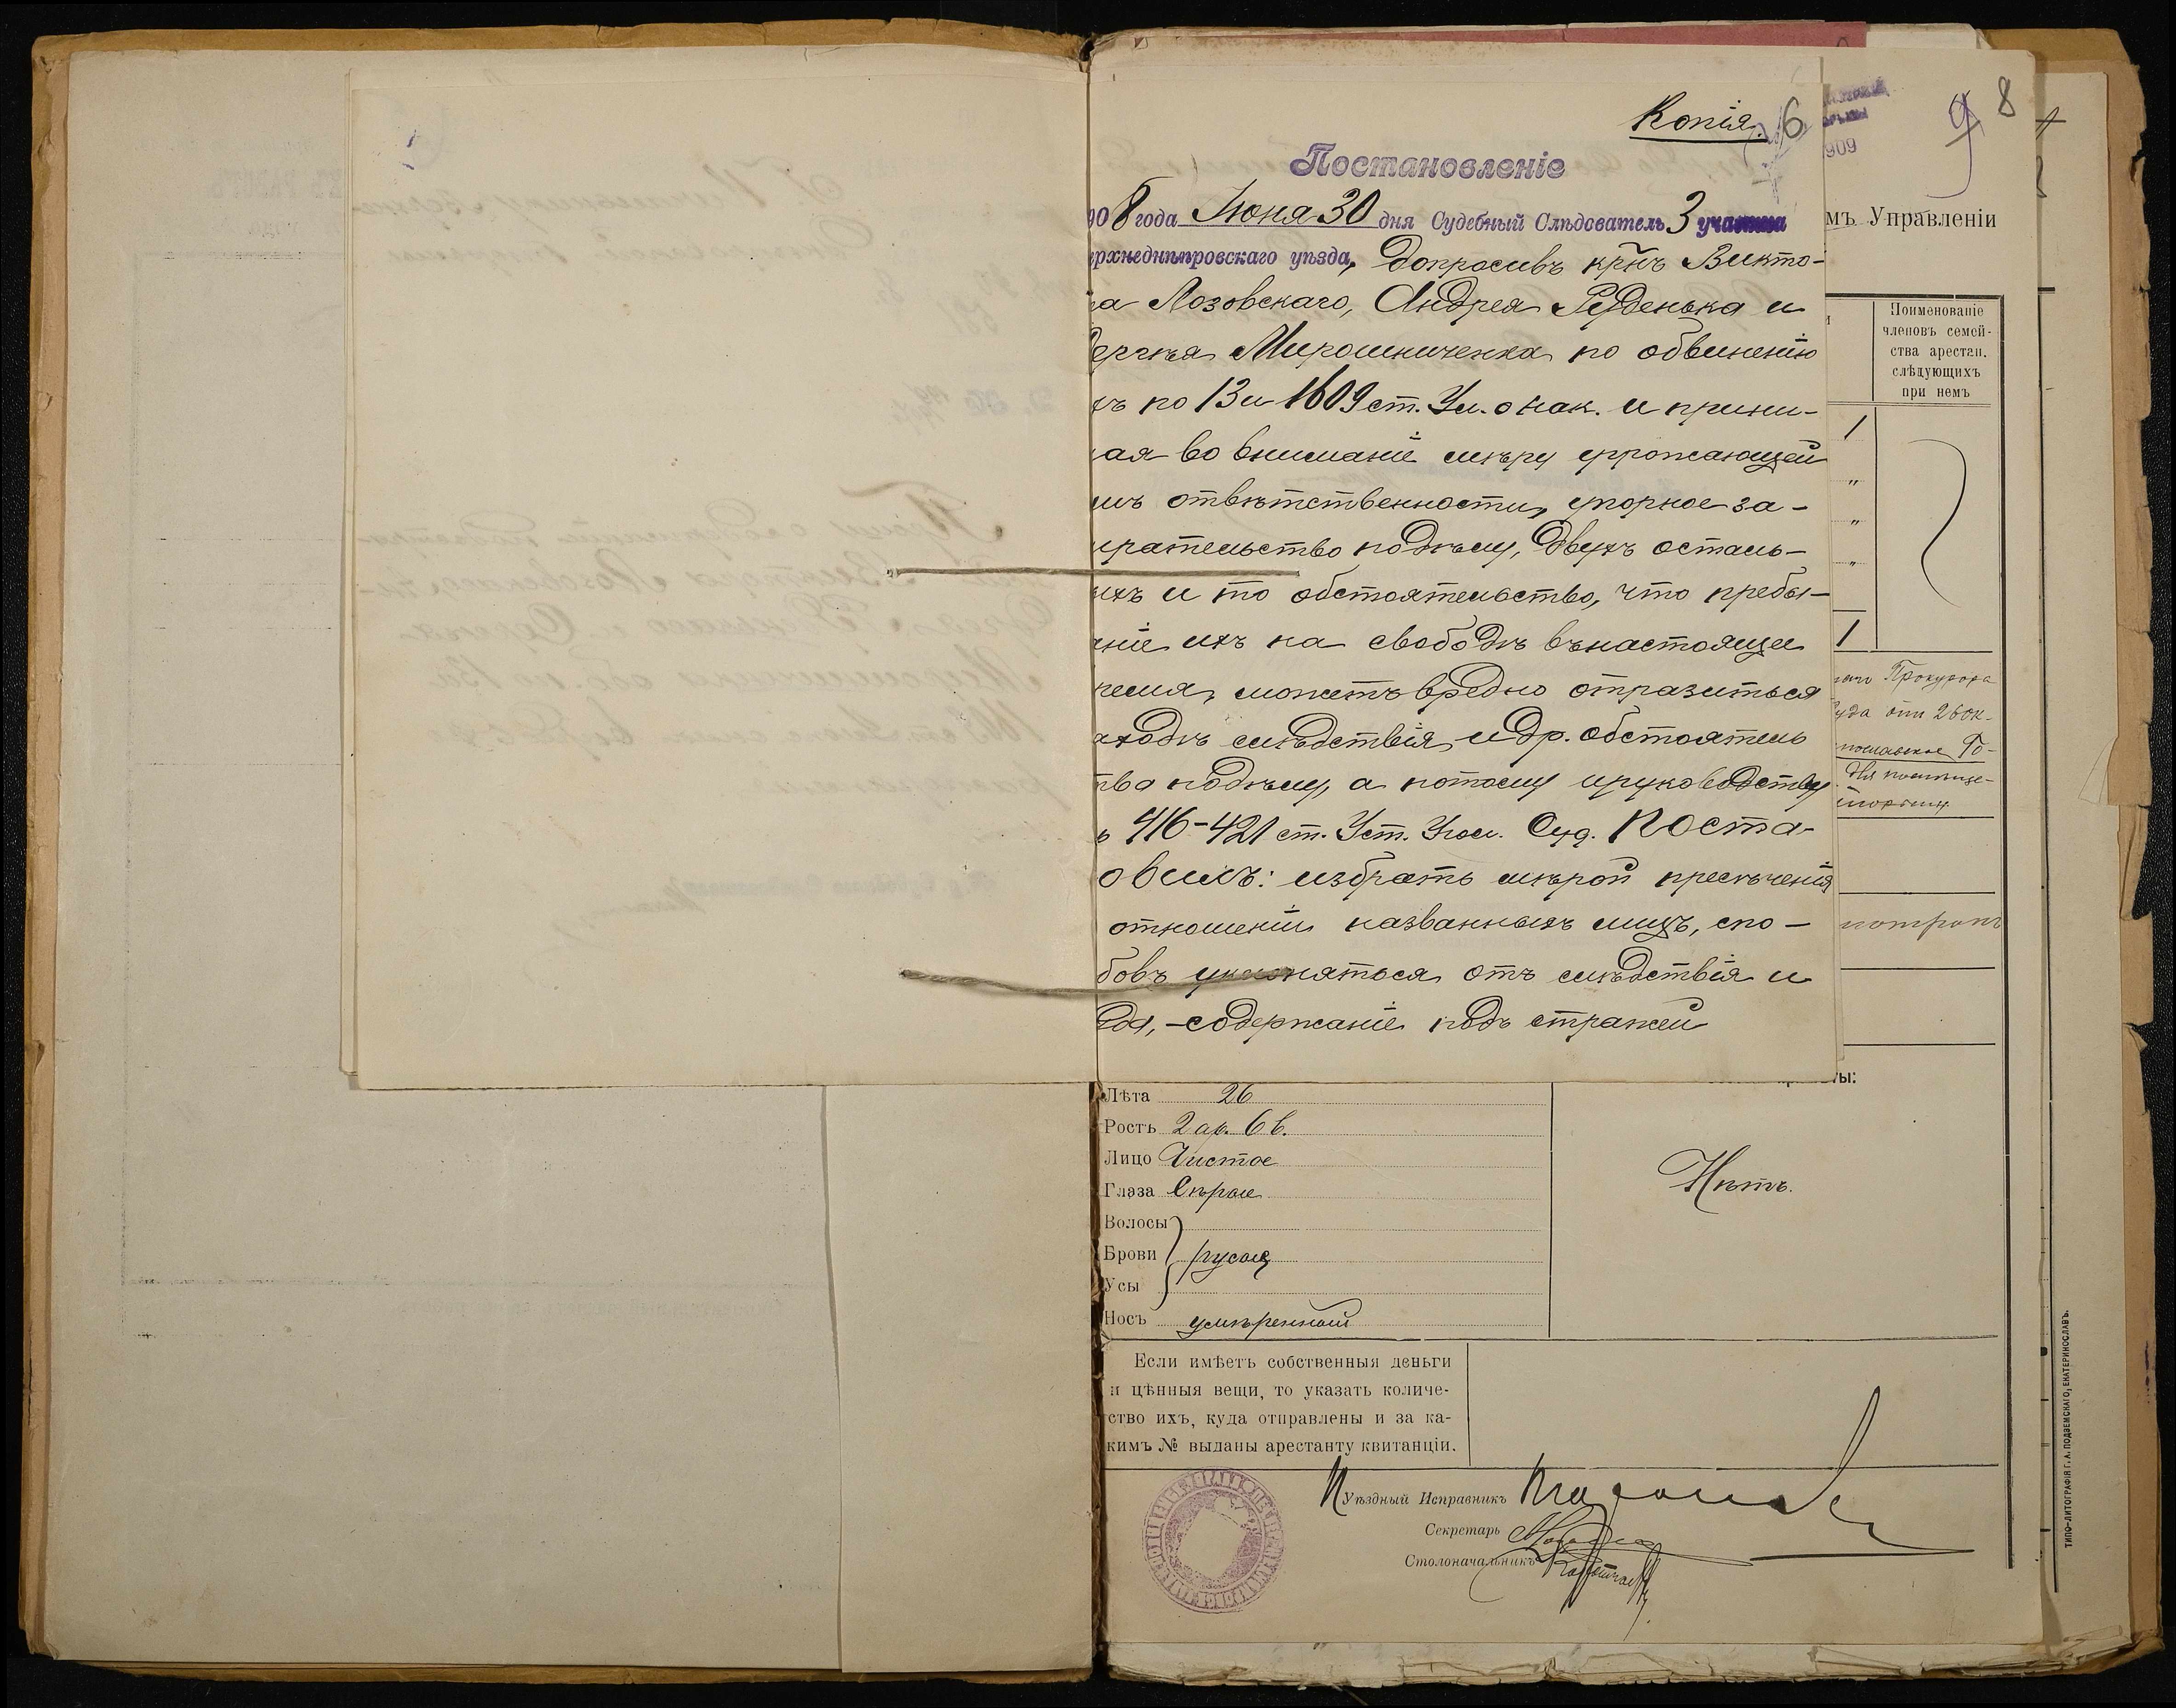 Копія.
6
Постановленіе
908 года Іюня 30 дня Судебный Слѣдователь 3 участка
рхнеднѣпровскаго уѣзда, допросивъ кр̃нъ Викто-
ра Лозовскаго, Андрея Руденька и
ергѣя Мирошниченка по обвиненію
хъ по 13 и 1609 ст. Ул. о нак. и прини-
ая во вниманіе мѣру угрожающей
мъ отвѣтственности, упорное за-
ирательство поднѣму, двухъ осталь-
ыхъ и то обстоятельство, что пребы-
аніе ихъ на свободѣ въ настоящее
ремя, можетъ вредно отразиться
а ходѣ слѣдствія и др. обстоятель
тва поднѣму, а потому и руководству
ь 416-421 ст. Уст. Угол. Суд. Поста-
овилъ: избрать мѣрой пресѣченія
отношеніи названныхъ лицъ, спо-
бовъ уклоняться отъ слѣдствія и
уда, - содержаніе подъ стражей
9 8
909
мъ Управленіи
Поименованіе
членовъ семей-
ства арестан.
слѣдующихъ
при немъ
1
"
"
"
1
Прокурора
уда отъ 26 ок-
ты:
Лѣта 26
Ростъ 2 ар. 6 в.
Лицо Чистое
Глаза Сѣрые
Волосы
Брови русые
Усы
Носъ умѣренный
Нѣтъ.
Если имѣетъ собственныя деньги
и цѣнныя вещи, то указать количе-
ство ихъ, куда отправлены и за ка-
кимъ № выданы арестанту квитанціи.
Уѣздный Исправникъ
Секретарь
Столоначальникъ
ТИПО-ЛИТОГРАФІЯ Г. А. ПОДЗЕМСКАГО, ЕКАТЕРИНОСЛАВЪ.